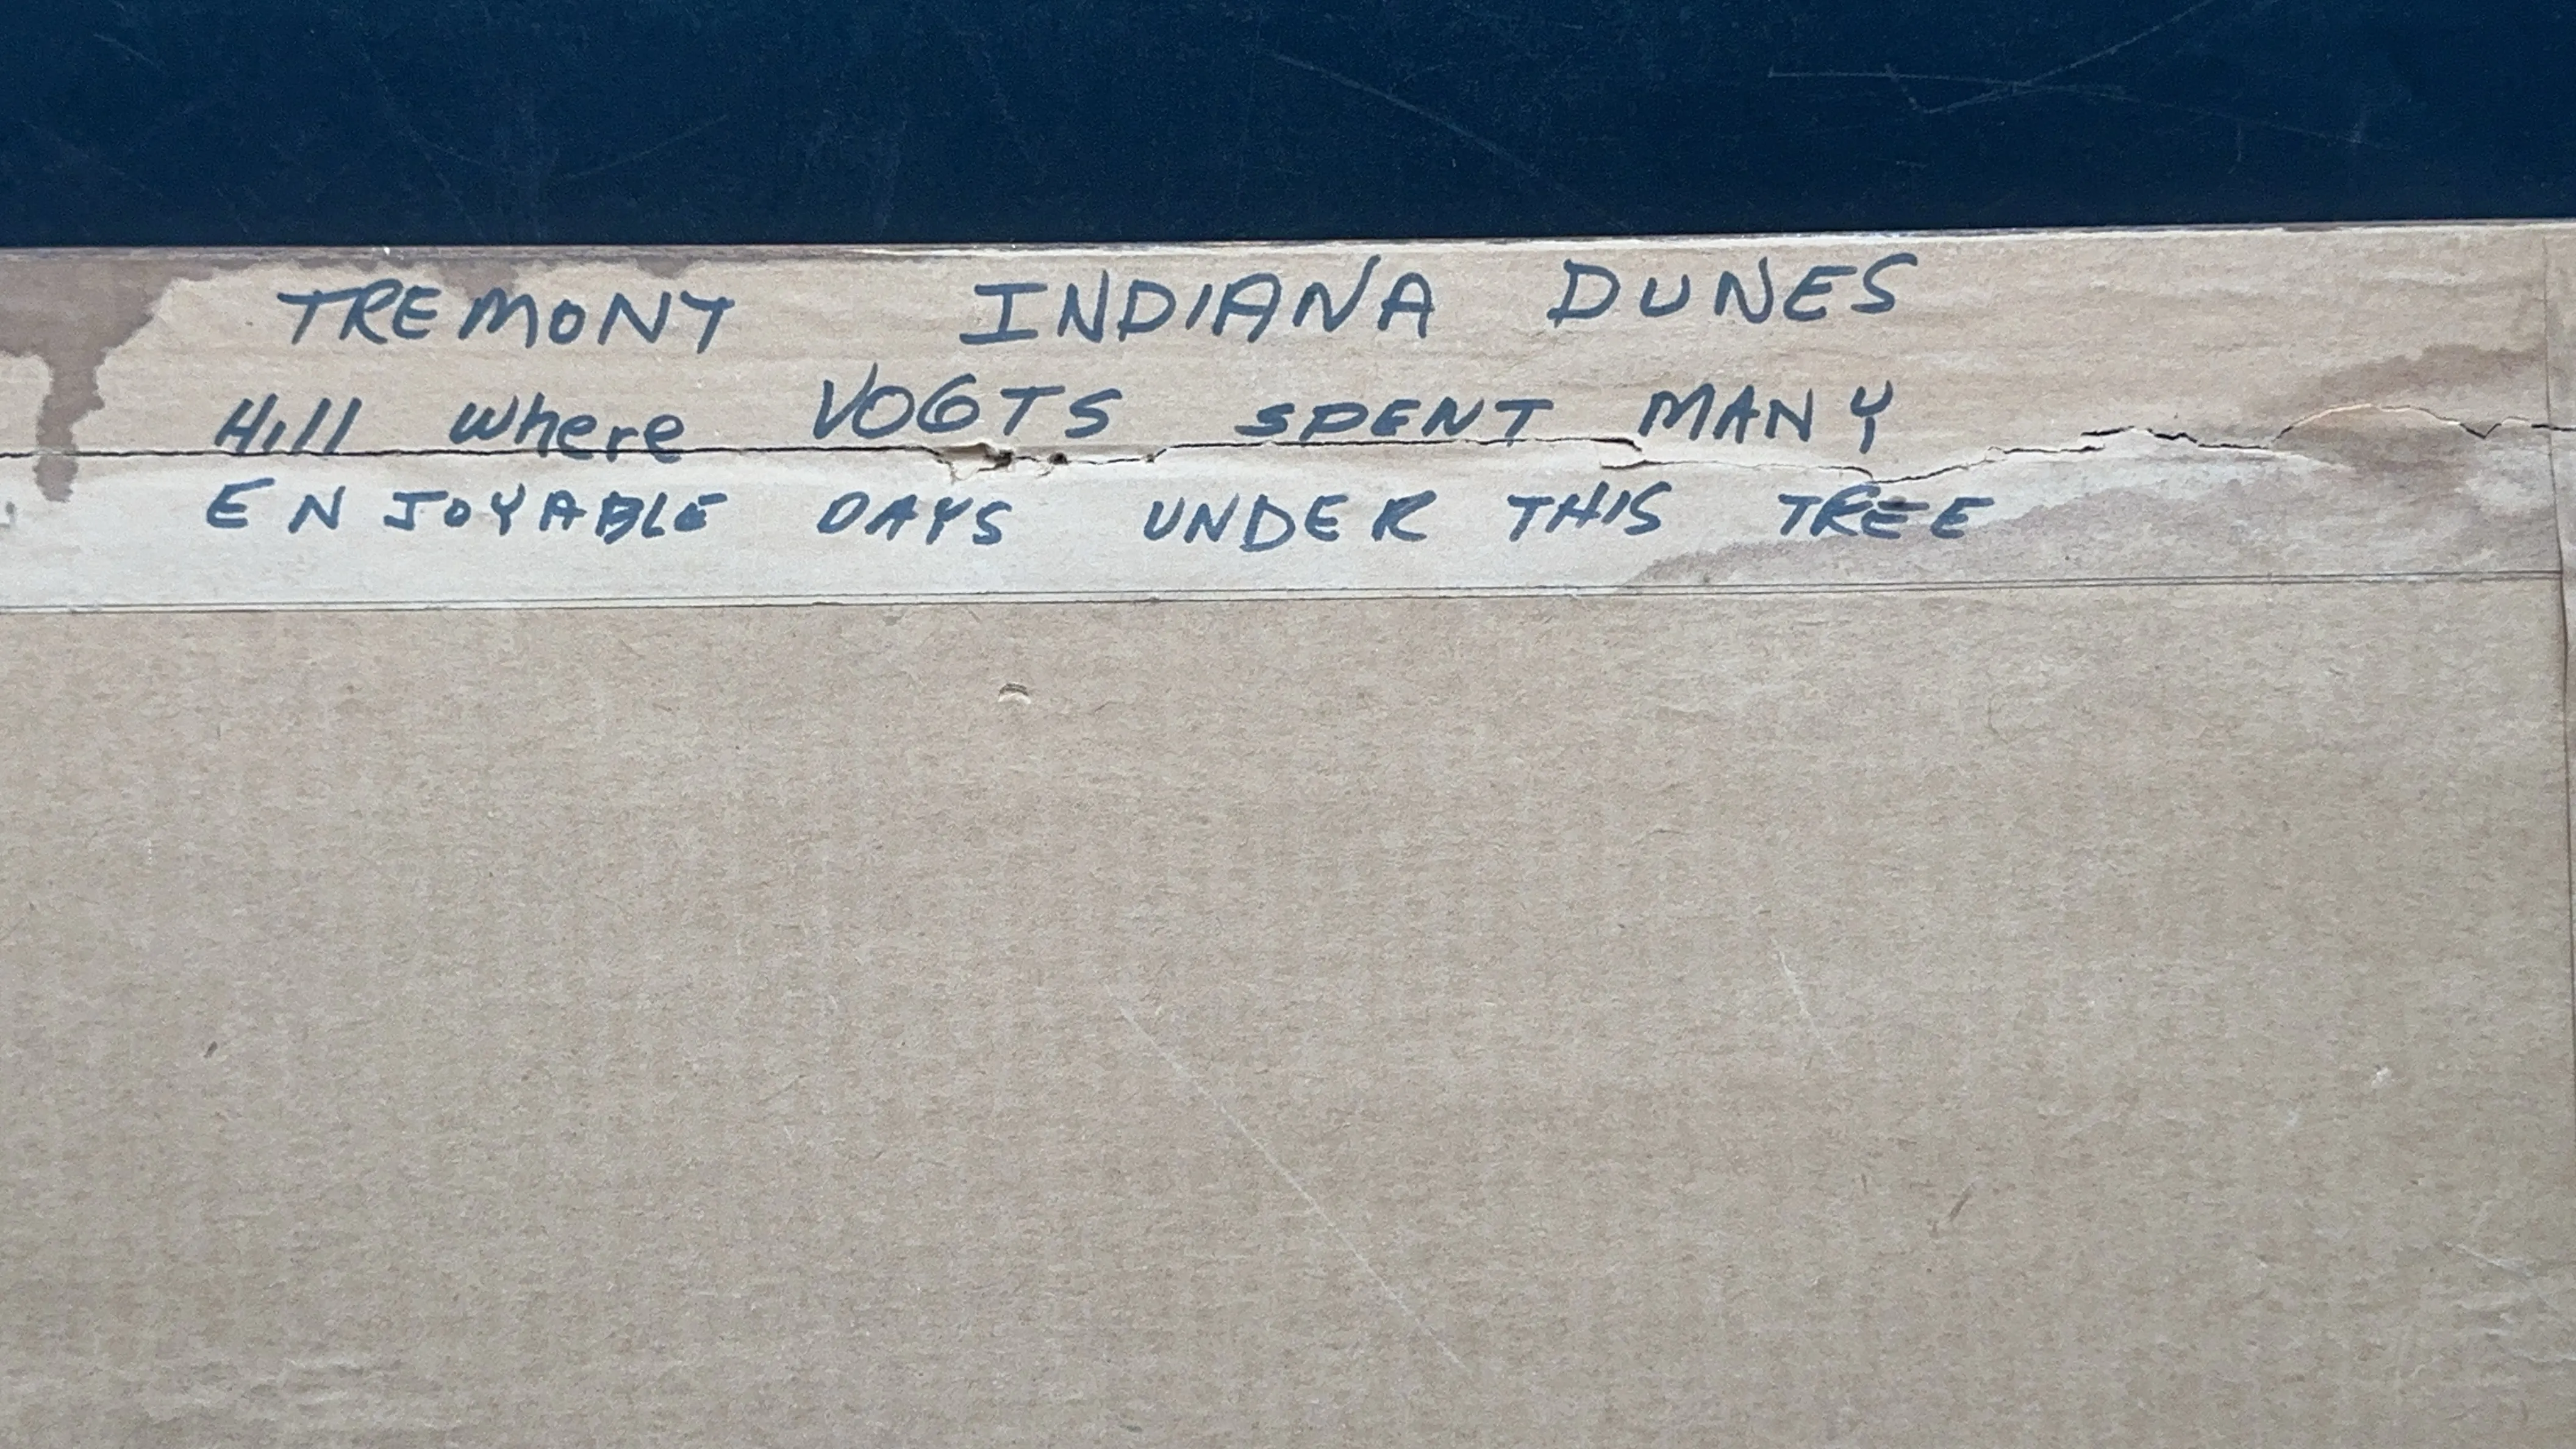 TREMONT INDIANA DUNES
Hill where VOGTS SPENT MANY
ENJOYABLE DAYS UNDER THIS TREE